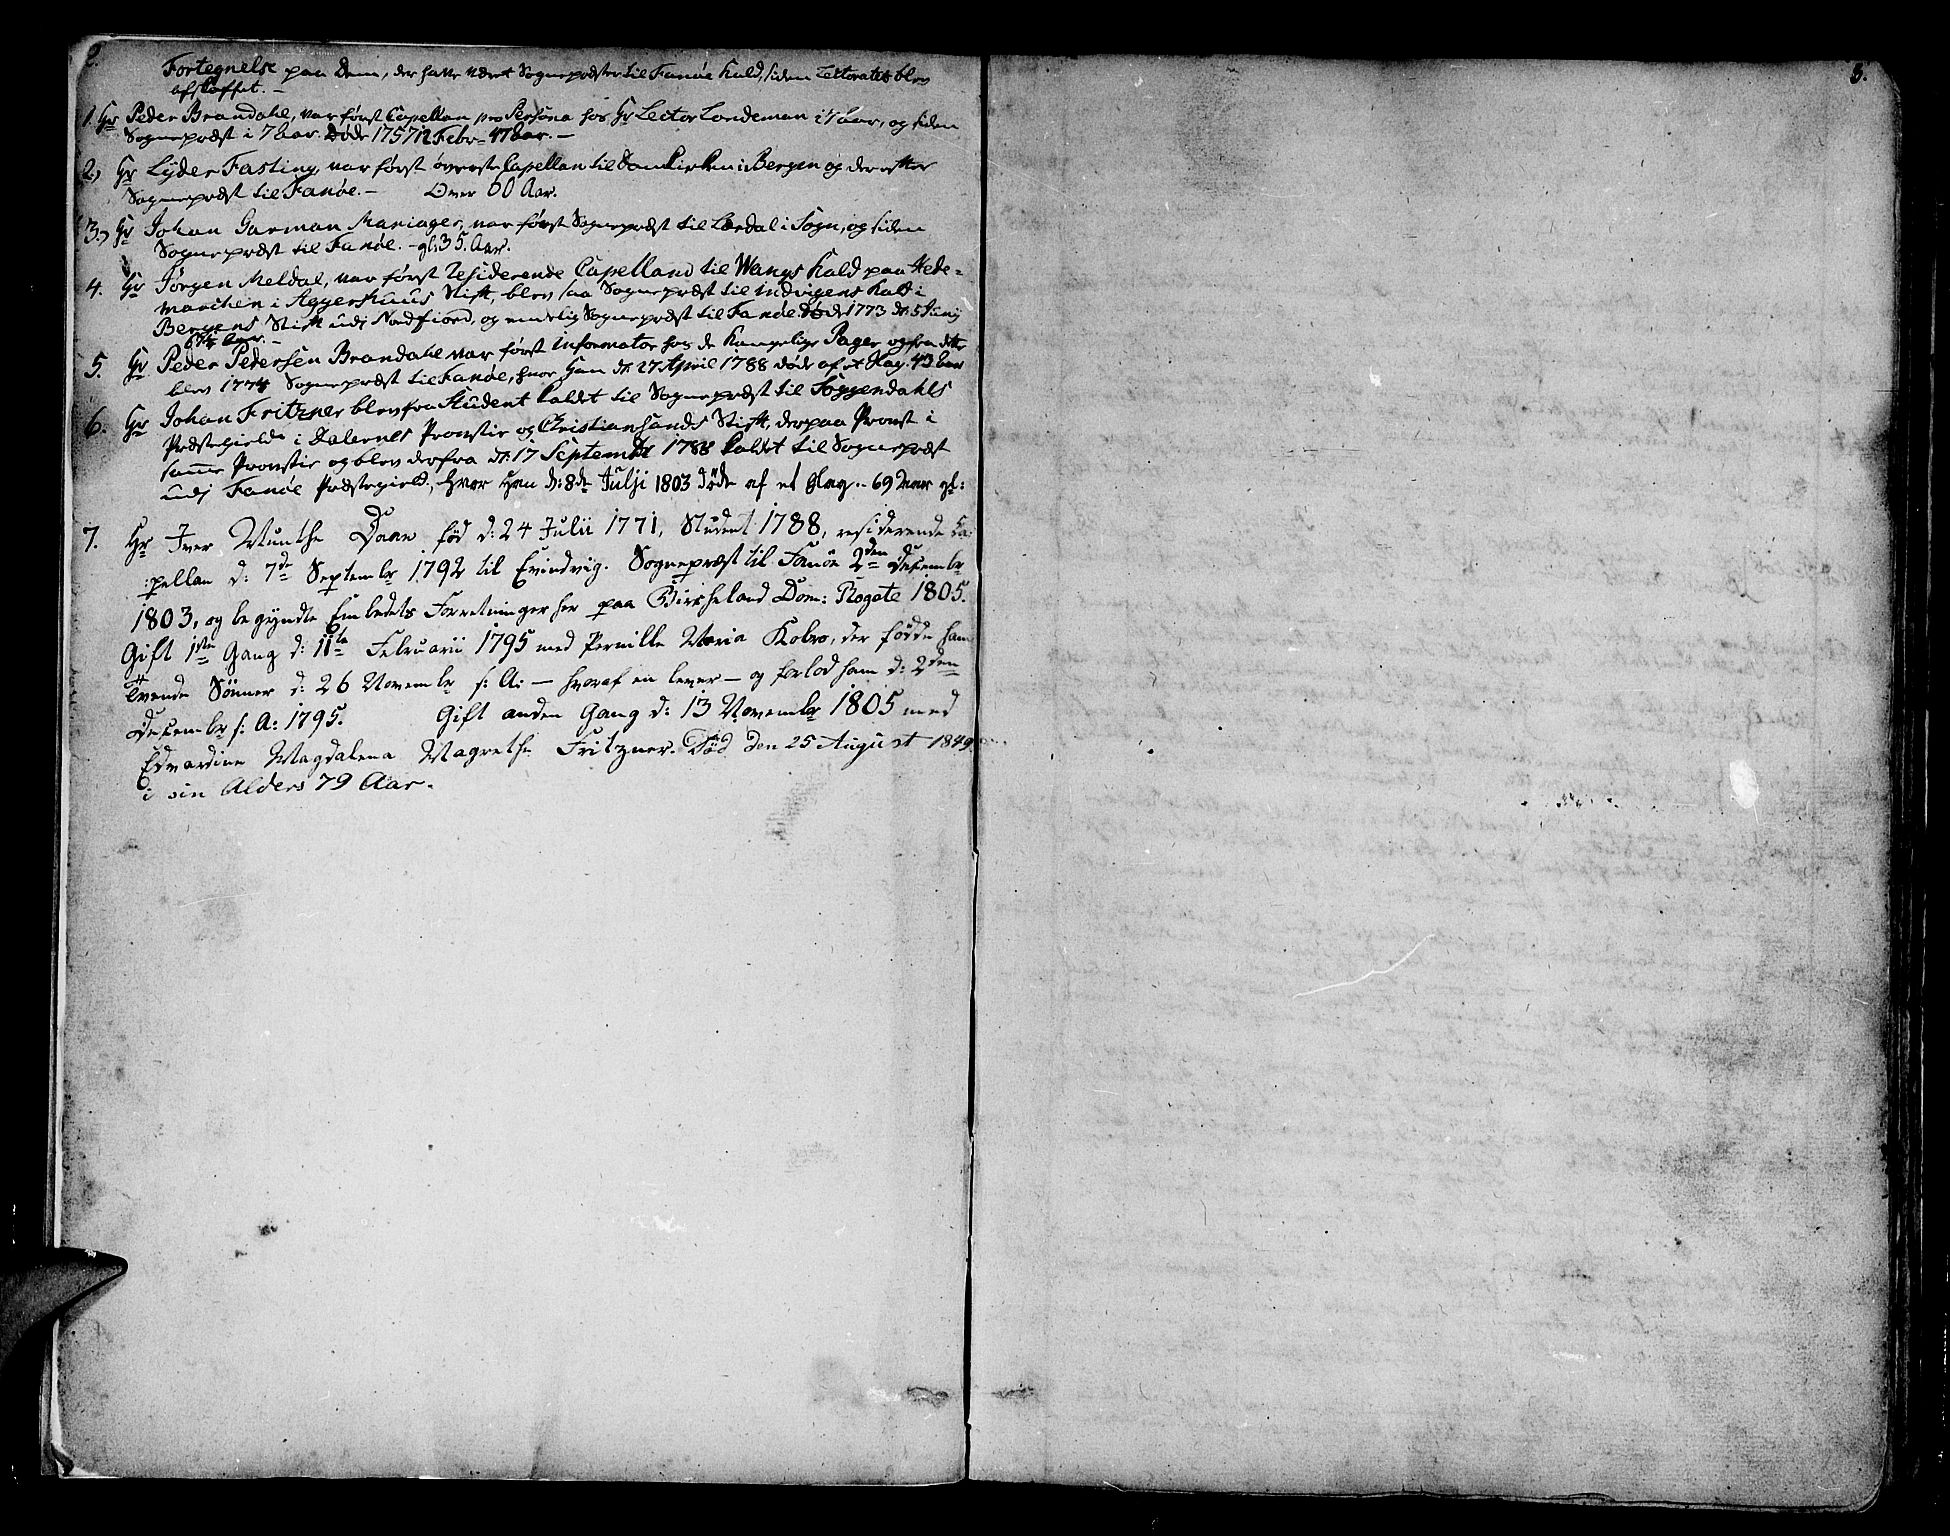 2.
Fortegnelse paa Dem, der have været Sognepræster til Fanøe Kald, siden Lectoratet blev
afskaffet. –
1. Hr Peder Brandahl, var først Capellan pro Persona hos Hr Lector Londeman i 7 Aar, og siden
Sognepræst i 7 Aar. Døde 1757 12 Febr. 47 Aar. –
2. Hr Lyder Fasting, var først øverste Capellan til Domkirken i Bergen og derefter
Sognepræst til Fanøe. – Over 60 Aar.
3. Hr Johan Garman Mariager, var først Sognepræst til Lærdal i Sogn, og siden
Sognepræst til Fanøe. – gl. 35 Aar.
4. Hr Jørgen Meldal, var først Residerende Capelland til Wangs Kald paa Hede-
marchen i Aggershuus Stift, blev saa Sognepræst til Indvigens Kald i
Bergens Stift udj Nordfiord, og endelig Sognepræst til Fanøe. Døde 1773 d. 5 Junij
67½ Aar. –
5. Hr Peder Pedersen Brandahl var først Informator hos de Kongelige Pager og fra dette
blev 1774 Sognepræst til Fanøe, hvor Han d. 27 April 1788 døde af et Slag. 43 Aar
6. Hr Johan Fritzner blev fra Student kaldet til Sognepræst til Soggendahls
Præstegield i Dalernes Provstie og Christiansands Stift, derpaa Provst i
samme Provstie og blev derfra d. 17 September 1788 kaldet til Sognepræst
udj Fanøe Præstegield, hvor Han d: 8de Julji 1803 døde af et Slag. – 69 Aar gl:
7. Hr Iver Munthe Daae fød d: 24 Julii 1771, Student 1788, residerende Ca-
pellan d: 7de Septembr 1792 til Evindvig. Sognepræst til Fanøe 2den Decembr
1803, og begyndte Embedets Forretninger her paa Birkeland Dom: Rogate 1805.
Gift 1ste Gang d: 11te Februarii 1795 med Pernille Maria Kobro, der fødde ham
tvende Sønner d: 26 Novembr s: A: – hvoraf en lever – og forlod ham d: 2den
Decembr s: A: 1795. Gift anden Gang d: 13 Novembr 1805 med
Edvardine Magdalena Magrethe Fritzner. Død den 25 August 1849
i sin Alders 79 Aar.
3.